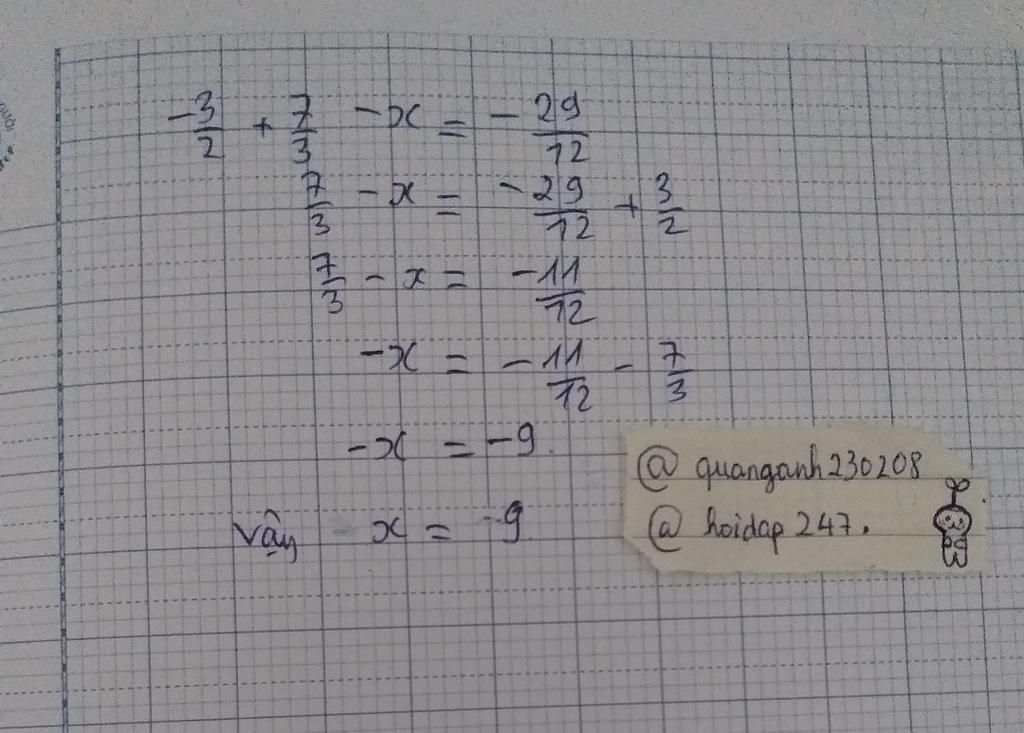 -3/2 + 7/3 -x = - 29/12
7/3 - x = - 29/12 + 3/2
7/3 - x = - 11/12
-x = - 11/12 - 7/3
-x = -9.
Vậy x = 9
@ quanganh230208
@ hoidap 247.